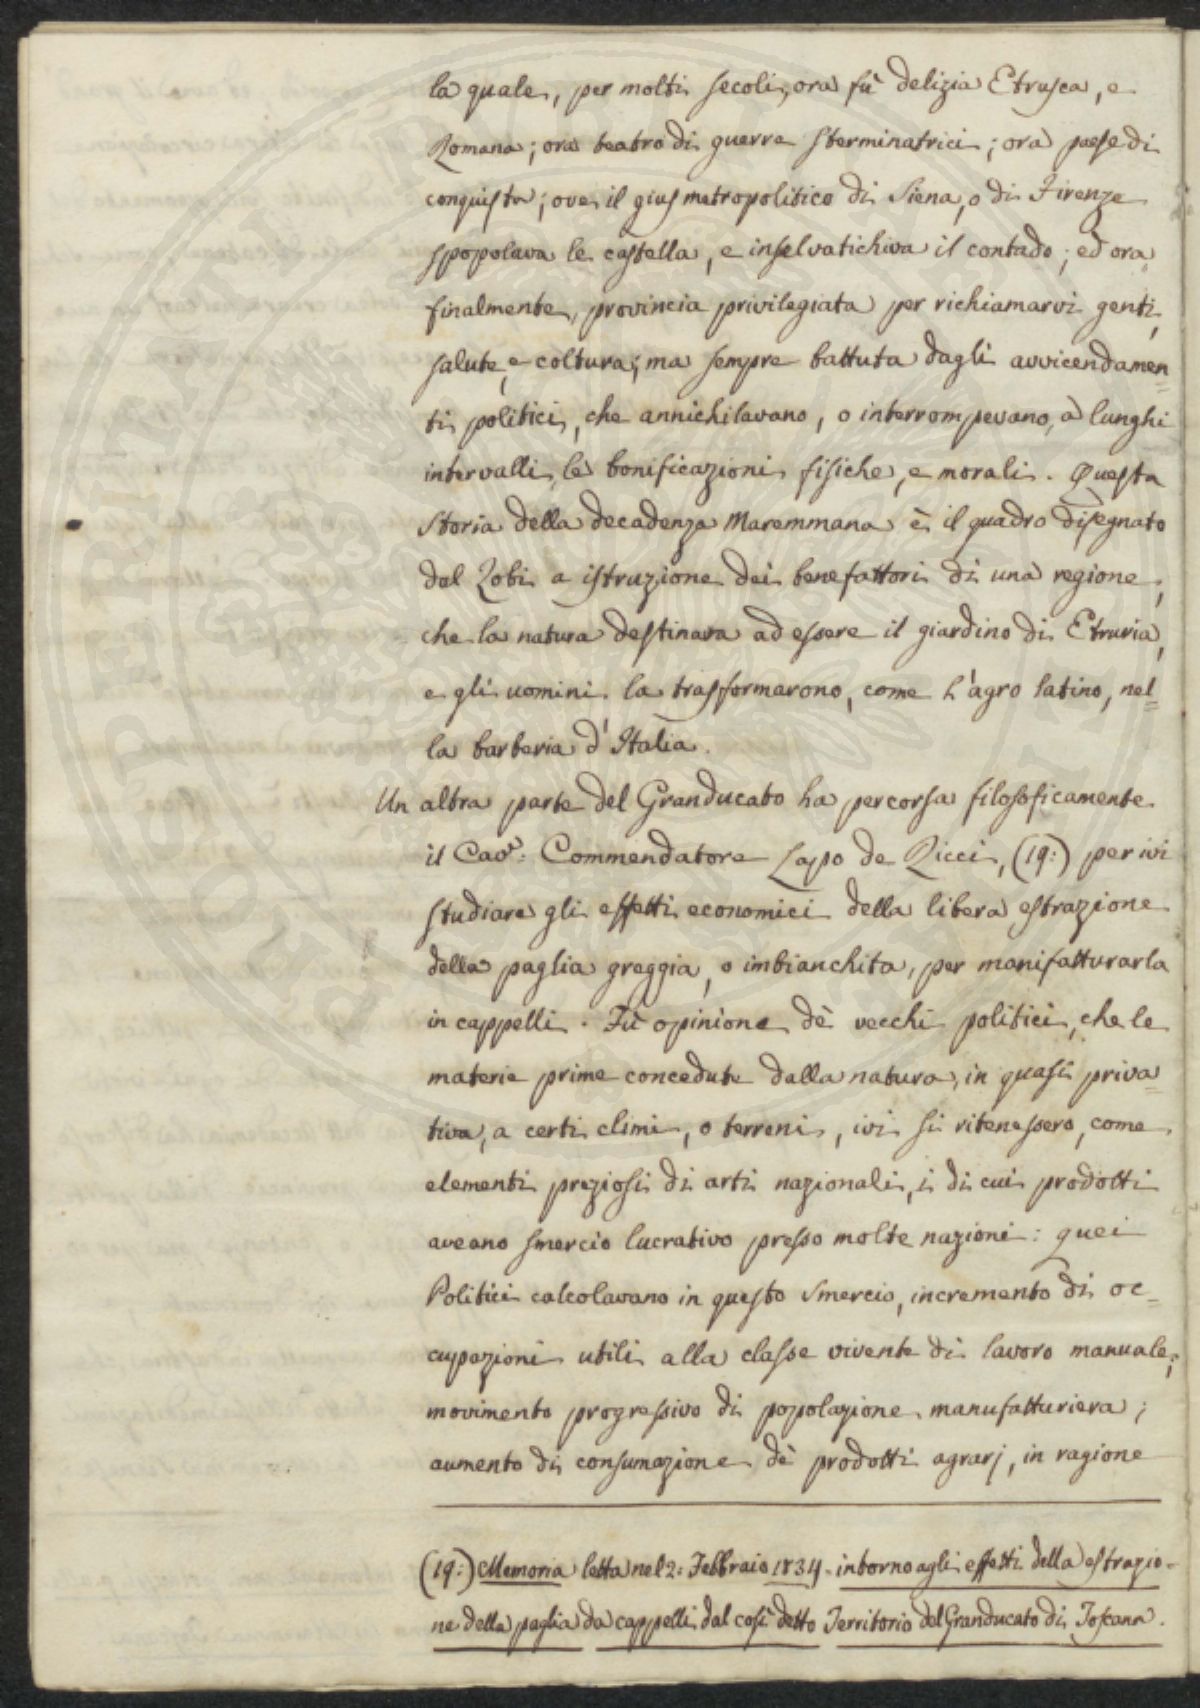 la quale, per molti secoli, ora fù delizia Etrusca, e
Romana; ora teatro di guerre sterminatrici; ora paese di
conquista; ove il gius metropolitico di Siena, o di Firenze
spopolava le castella, e inselvatichiva il contado; ed ora
finalmente, provincia privilegiata per richiamarvi genti,
salute, e coltura; ma sempre battuta dagli avvicendamen=
ti politici, che annichilavano, o interrompevano, a lunghi
intervalli, le bonificazioni fisiche, e morali. Questa
Storia della decadenza Maremmana è il quadro disegnato
dal Zobi a istruzione dei benefattori di una regione,
che la natura destinava ad essere il giardino di Etruria,
e gli uomini la trasformarono, come l'agro latino, nel=
la barberia d'Italia.
Un altra parte del Granducato ha percorsa filosoficamente
il Cavr: Commendatore Lapo de Ricci, (19:) per ivi
studiare gli effetti economici della libera estrazione
della paglia greggia, o imbianchita, per manifatturarla
in cappelli. Fù opinione dè vecchi politici, che le
materie prime concedute dalla natura, in quasi priva=
tiva, a certi climi, o terreni, ivi si ritenessero, come
elementi preziosi di arti nazionali, i di cui prodotti
aveano smercio lucrativo presso molte nazioni: quei
Politici calcolavano in questo smercio, incremento di oc=
cupazioni utili alla classe vivente di lavoro manuale;
movimento progressivo di popolazione manufatturiera;
aumento di consumazione dè prodotti agrarj, in ragione
(19:) Memoria letta nel 2: Febbraio 1834. intorno agli effetti della estrazio=
ne della paglia da cappelli dal così detto Territorio del Granducato di Toscana.